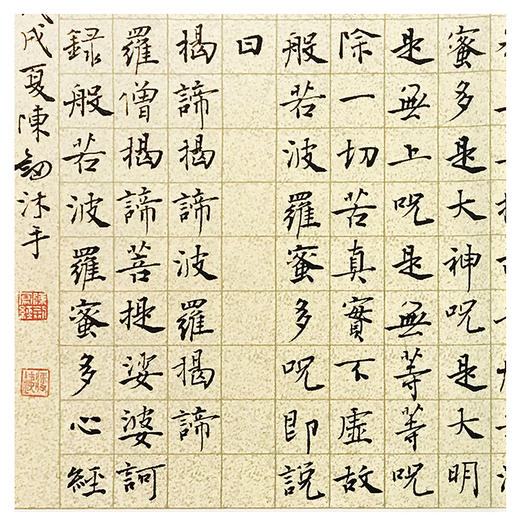 蜜多是大神呪是大明
是無上呪是無等等呪
除一切苦真實不虛故
般若波羅蜜多呪即說
曰
揭諦揭諦波羅揭諦
羅僧揭諦菩提娑婆訶
録般若波羅蜜多心經
戌夏陳沐手